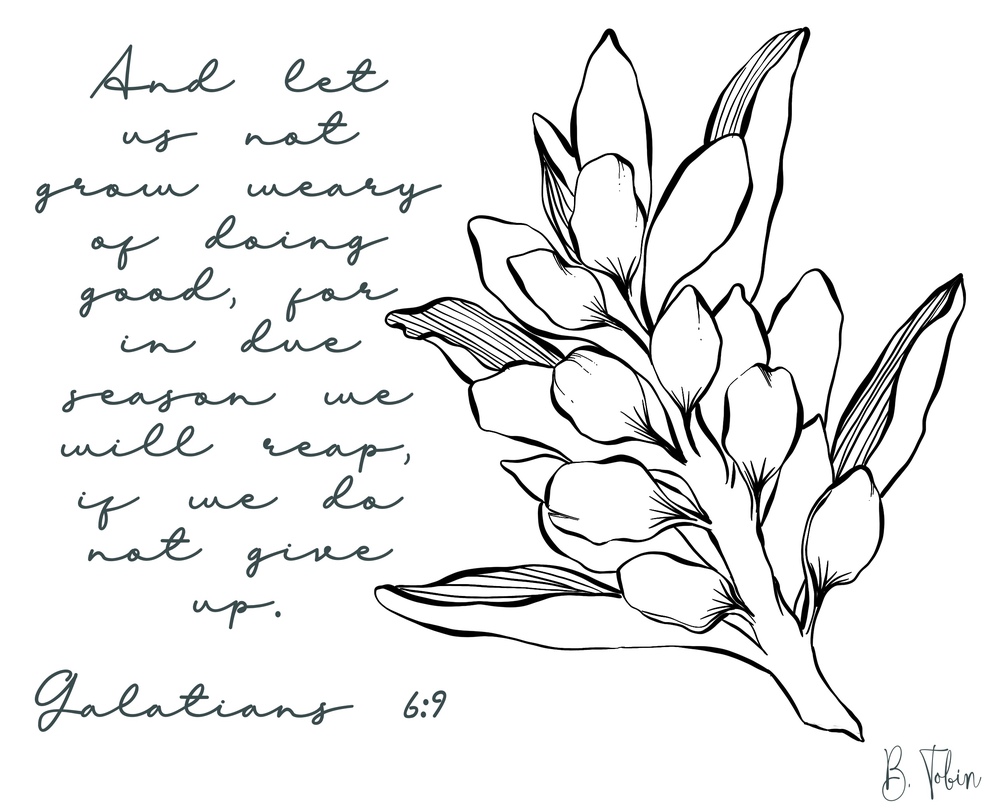 And let
us not
grow weary
of doing
good, for
in due
season we
will reap,
if we do
not give
up.
Galatians 6:9
B. Tobin